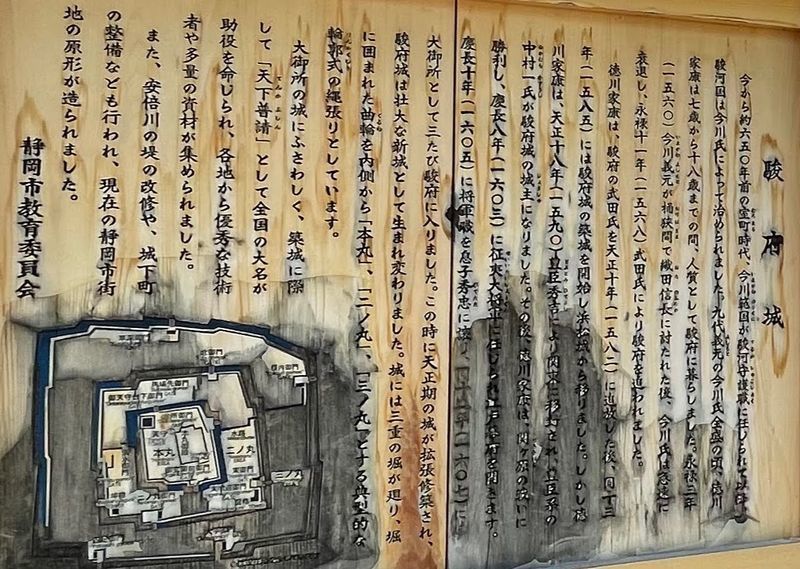 駿府城
今から約六五〇年前の室町時代、今川範国が駿河守護職に任じられて以降
駿河国は今川氏によって治められました。九代義元の今川氏全盛の頃、徳川
家康は七歳から十八歳までの間、人質として駿府に暮らしました。永禄三年
(一五六〇)今川義元が桶狭間で織田信長に討たれた後、今川氏は急速に
衰退し、永禄十一年(一五六八)武田氏により駿府を追われました。
徳川家康は、駿府の武田氏を天正十年(一五八二)に追放した後、同十三
年(一五八五)には駿府城の築城を開始し浜松城から移りました。しかし徳
川家康は、天正十八年(一五九〇)豊臣秀吉により関東に移封され、豊臣系の
中村一氏が駿府城の城主になりました。その後、徳川家康は、関ヶ原の戦いに
勝利し、慶長八年(一六〇三)に征夷大将軍に任じられ
を開きます。
慶長十年(一六〇五)に将軍職を息子秀忠に譲り、
(一六〇七)に
大御所として三たび駿府に入りました。この時に天正期の城が拡張修築され、
駿府城は壮大な新城として生まれ変わりました。城には三重の堀が廻り、堀
に囲まれた曲輪を内側から「本丸」、「二ノ丸」、「三ノ丸」とする典型的な
輪郭式の縄張りとしています。
大御所の城にふさわしく、築城に際
して「天下普請」として全国の大名が
助役を命じられ、各地から優秀な技術
者や多量の資材が集められました。
また、安倍川の堤の改修や、城下町
の整備なども行われ、現在の静岡市街
地の原形が造られました。
静岡市教育委員会
本丸
二ノ丸
二ノ丸